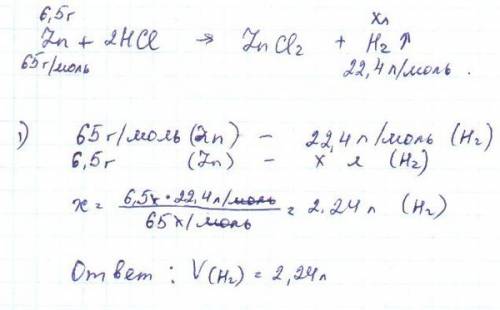 6,5г хл
Zn + 2HCl → ZnCl2 + H2 ↑
65г/моль 22,4 л/моль.
1) 65 г/моль (Zn) - 22,4 л/моль (H2)
6,5г (Zn) - х л (H2)
х = 6,5г · 22,4 л/моль / 65г/моль = 2,24 л (H2)
Ответ : V(H2) = 2,24л